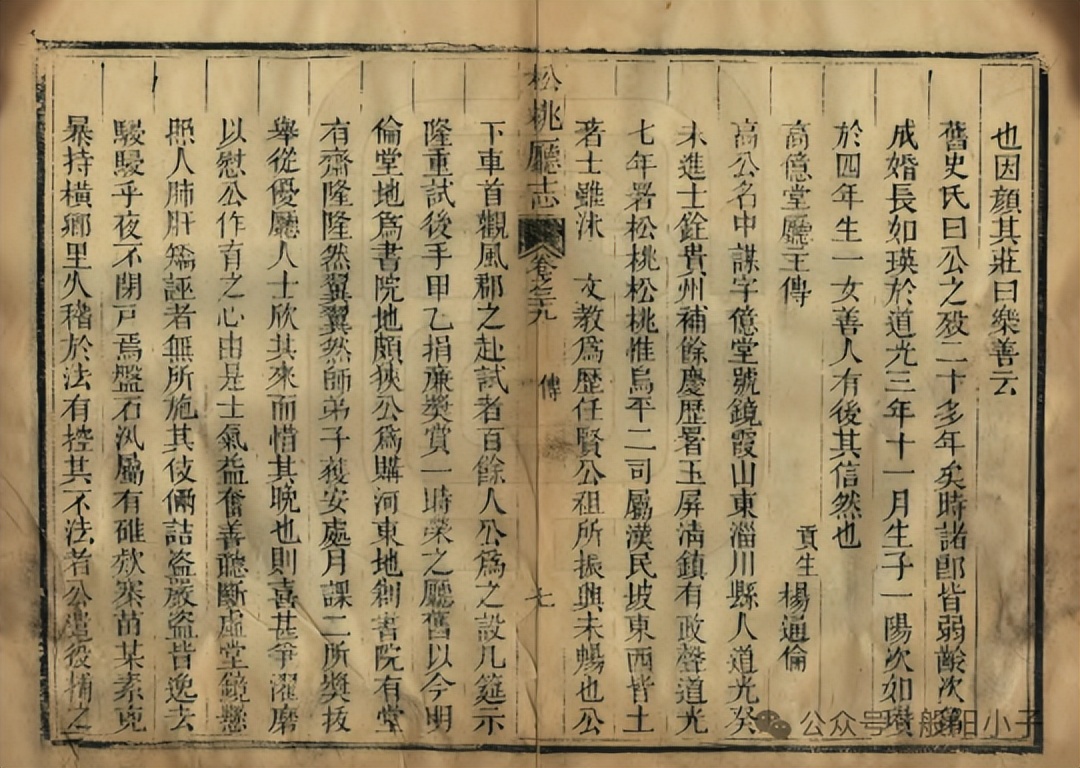 也因顏其莊曰樂善云
舊史氏曰公之歿二十多年矣時諸郎皆弱齡次第
成婚長如瑛於道光三年十一月生子一陽次如璵
於四年生一女善人有後其信然也
高億堂廳王傳
貢生楊通倫
高公名中謀字億堂號鏡霞山東淄川縣人道光癸
未進士銓貴州補餘慶歷署玉屏清鎮有政聲道光
七年署松桃松桃惟烏平二司屬漢民坡東西皆土
著士雖沐 文教為歷任賢公祖所振興未暢也公
松桃廳志 卷之二十九 傳 七
下車首觀風郡之赴試者百餘人公為之設几筵示
隆重試後手甲乙捐廉獎賞一時榮之廳舊以今明
倫堂地為書院地頗狹公為購河東地創書院有堂
有齋隆隆然翼翼然師弟子獲安處月課二所獎拔
舉從優廳人士欣其來而惜其晚也則喜甚爭濯磨
以慰公作育之心由是士氣益奮善聽斷虛堂鏡懸
照人肺肝矯誣者無所施其伎倆詰盜嚴盜皆逸去
駸駸乎夜不閉戶焉盤石汛屬有碓欸寨苗某素克
暴持橫鄉里久稽於法有控其不法者公遣役捕之
公众号 般阳小子